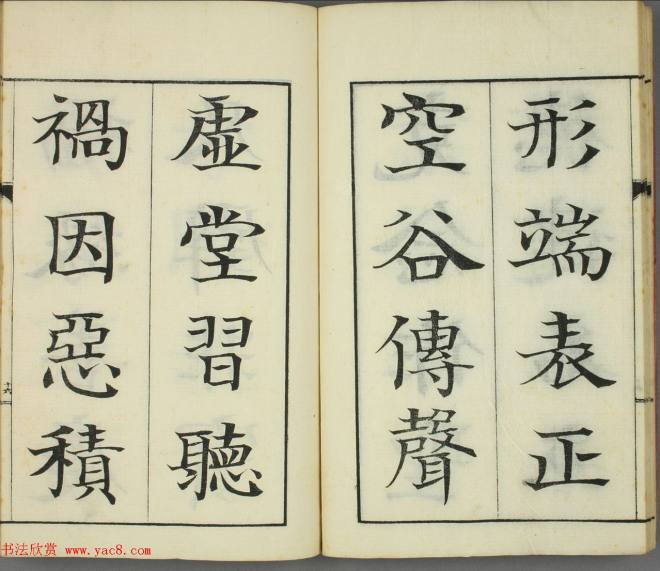 形端表正
空谷傳聲
虛堂習聽
禍因惡積
十六
书法欣赏 www.yac8.com